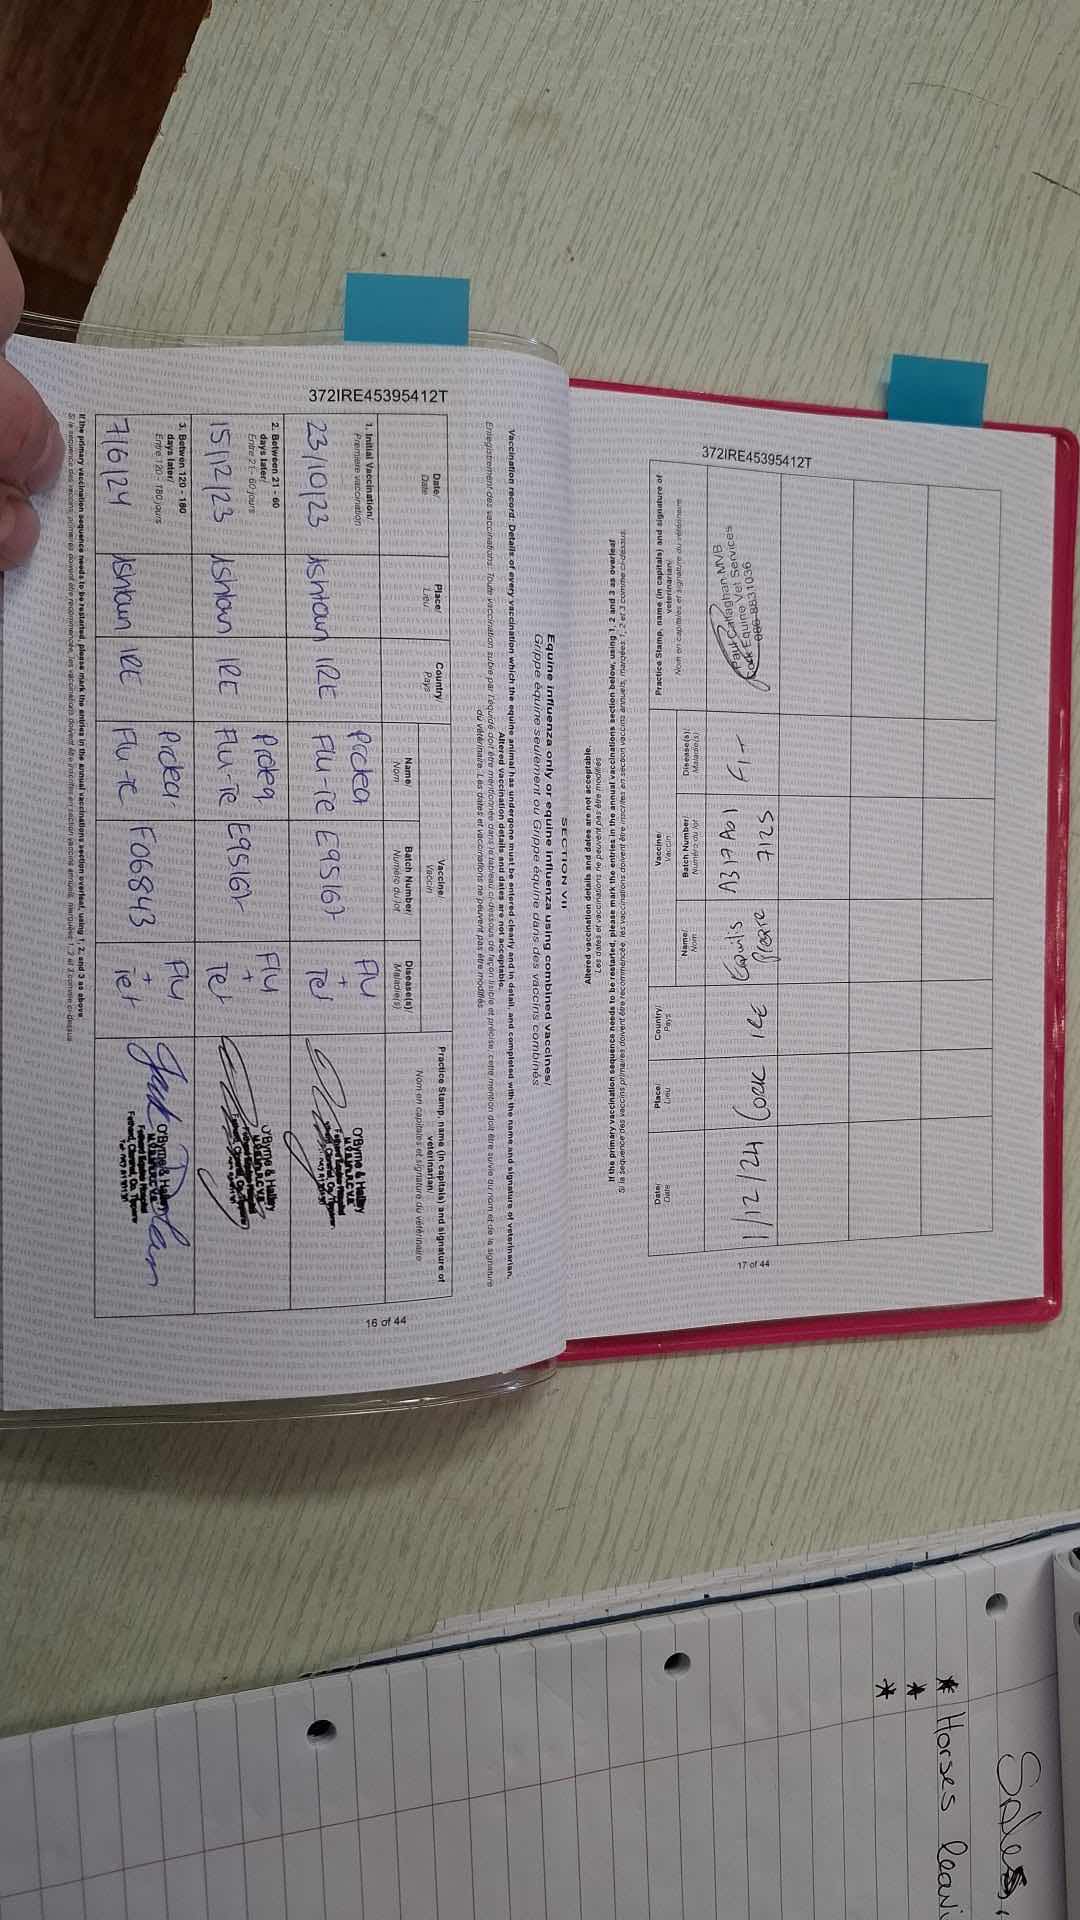 372IRE45395412T
SECTION VII
Equine influenza only or equine influenza using combined vaccines/
Grippe équine seulement ou Grippe équine dans des vaccins combinés
Vaccination record: Details of every vaccination which the equine animal has undergone must be entered clearly and in detail, and completed with the name and signature of veterinarian.
Altered vaccination details and dates are not acceptable.
Enregistrement des vaccinations: Toute vaccination subie par l'équidé doit être mentionnée dans le tableau ci-dessous de façon lisible et précise, cette mention doit être suivie du nom et de la signature
du vétérinaire. Les dates et vaccinations ne peuvent pas être modifiés
Date/ Date
Place/ Lieu
Country/ Pays
Vaccine/ Vaccin
Name/ Nom
Batch Number/ Numéro du lot
Disease(s)/ Maladie(s)
Practice Stamp, name (in capitals) and signature of
veterinarian/
Nom en capitales et signature du vétérinaire
1. Initial Vaccination/
Première vaccination
23/10/23 Ashtown IRE Proteq Flu-Te E95167 Flu + Tet
O'Byrne & Halley
2. Between 21 - 60
days later/
Entre 21 - 60 jours
15/12/23 Ashtown IRE Proteq Flu-Te E95167 Flu + Tet
O'Byrne & Halley
3. Between 120 - 180
days later/
Entre 120 - 180 jours
7/6/24 Ashtown IRE Proteq Flu-Te F06843 Flu + Tet
O'Byrne & Halley
Fethard Equine Hospital
Fethard, Clonmel, Co. Tipperary
If the primary vaccination sequence needs to be restarted, please mark the entries in the annual vaccinations section overleaf, using 1, 2, and 3 as above
Si la séquence des vaccins primaires doivent être recommencée, les vaccinations doivent être inscrites en section vaccins annuels, marquées 1, 2 et 3 comme ci-dessus
16 of 44
372IRE45395412T
Altered vaccination details and dates are not acceptable.
Les dates et vaccinations ne peuvent pas être modifiés
If the primary vaccination sequence needs to be restarted, please mark the entries in the annual vaccinations section below, using 1, 2 and 3 as overleaf
Si la séquence des vaccins primaires doivent être recommencée, les vaccinations doivent être inscrites en section vaccins annuels, marquées 1, 2 et 3 comme ci-dessus.
Date/ Date
Place/ Lieu
Country/ Pays
Vaccine/ Vaccin
Name/ Nom
Batch Number/ Numéro du lot
Disease(s)/ Maladie(s)
Practice Stamp, name (in capitals) and signature of
veterinarian/
Nom en capitales et signature du vétérinaire
1/12/24 Cork IRE Equilis Prequre A317A01 7125 F+T
Paul Callaghan MVB
Cork Equine Vet Services
086-8831036
17 of 44
Sales
* Horses leavi
*
*